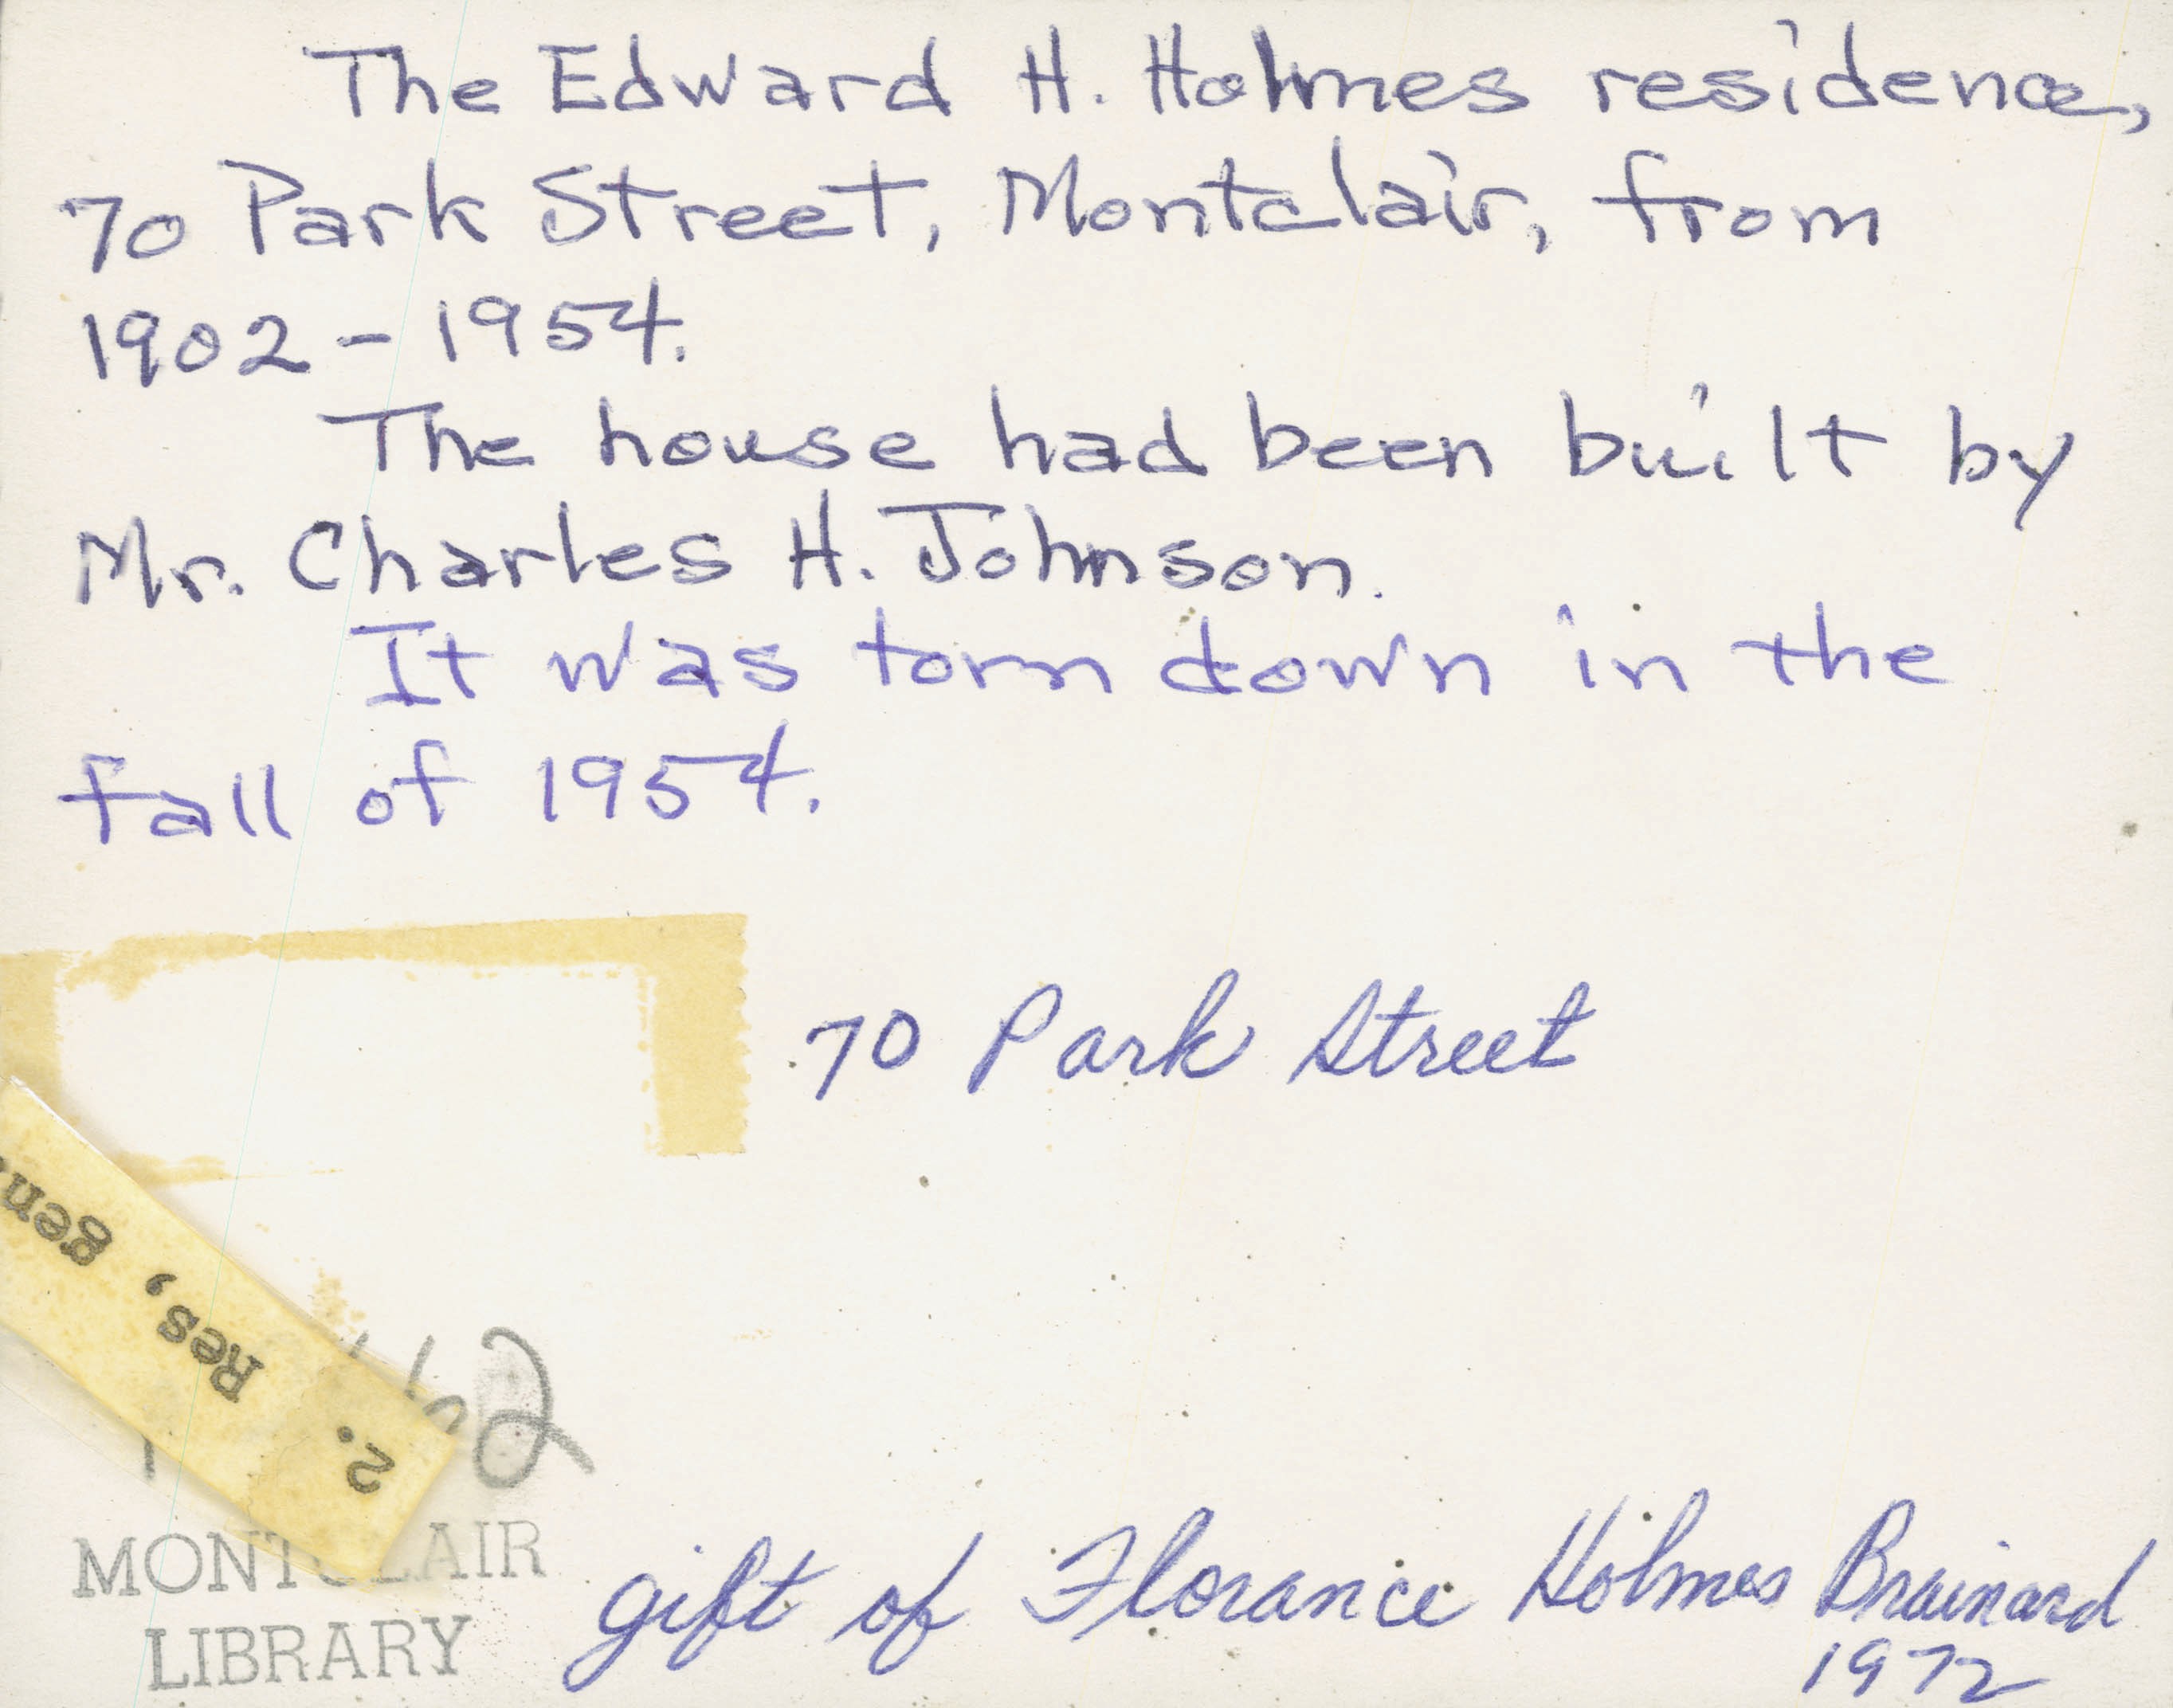 The Edward H. Holmes residence,
70 Park Street, Montclair, from
1902-1954.
The house had been built by
Mr. Charles H. Johnson.
It was torn down in the
fall of 1954.
70 Park Street
2. Res, gen.
MONTCLAIR
LIBRARY
gift of Florance Holmes Brainard
1972